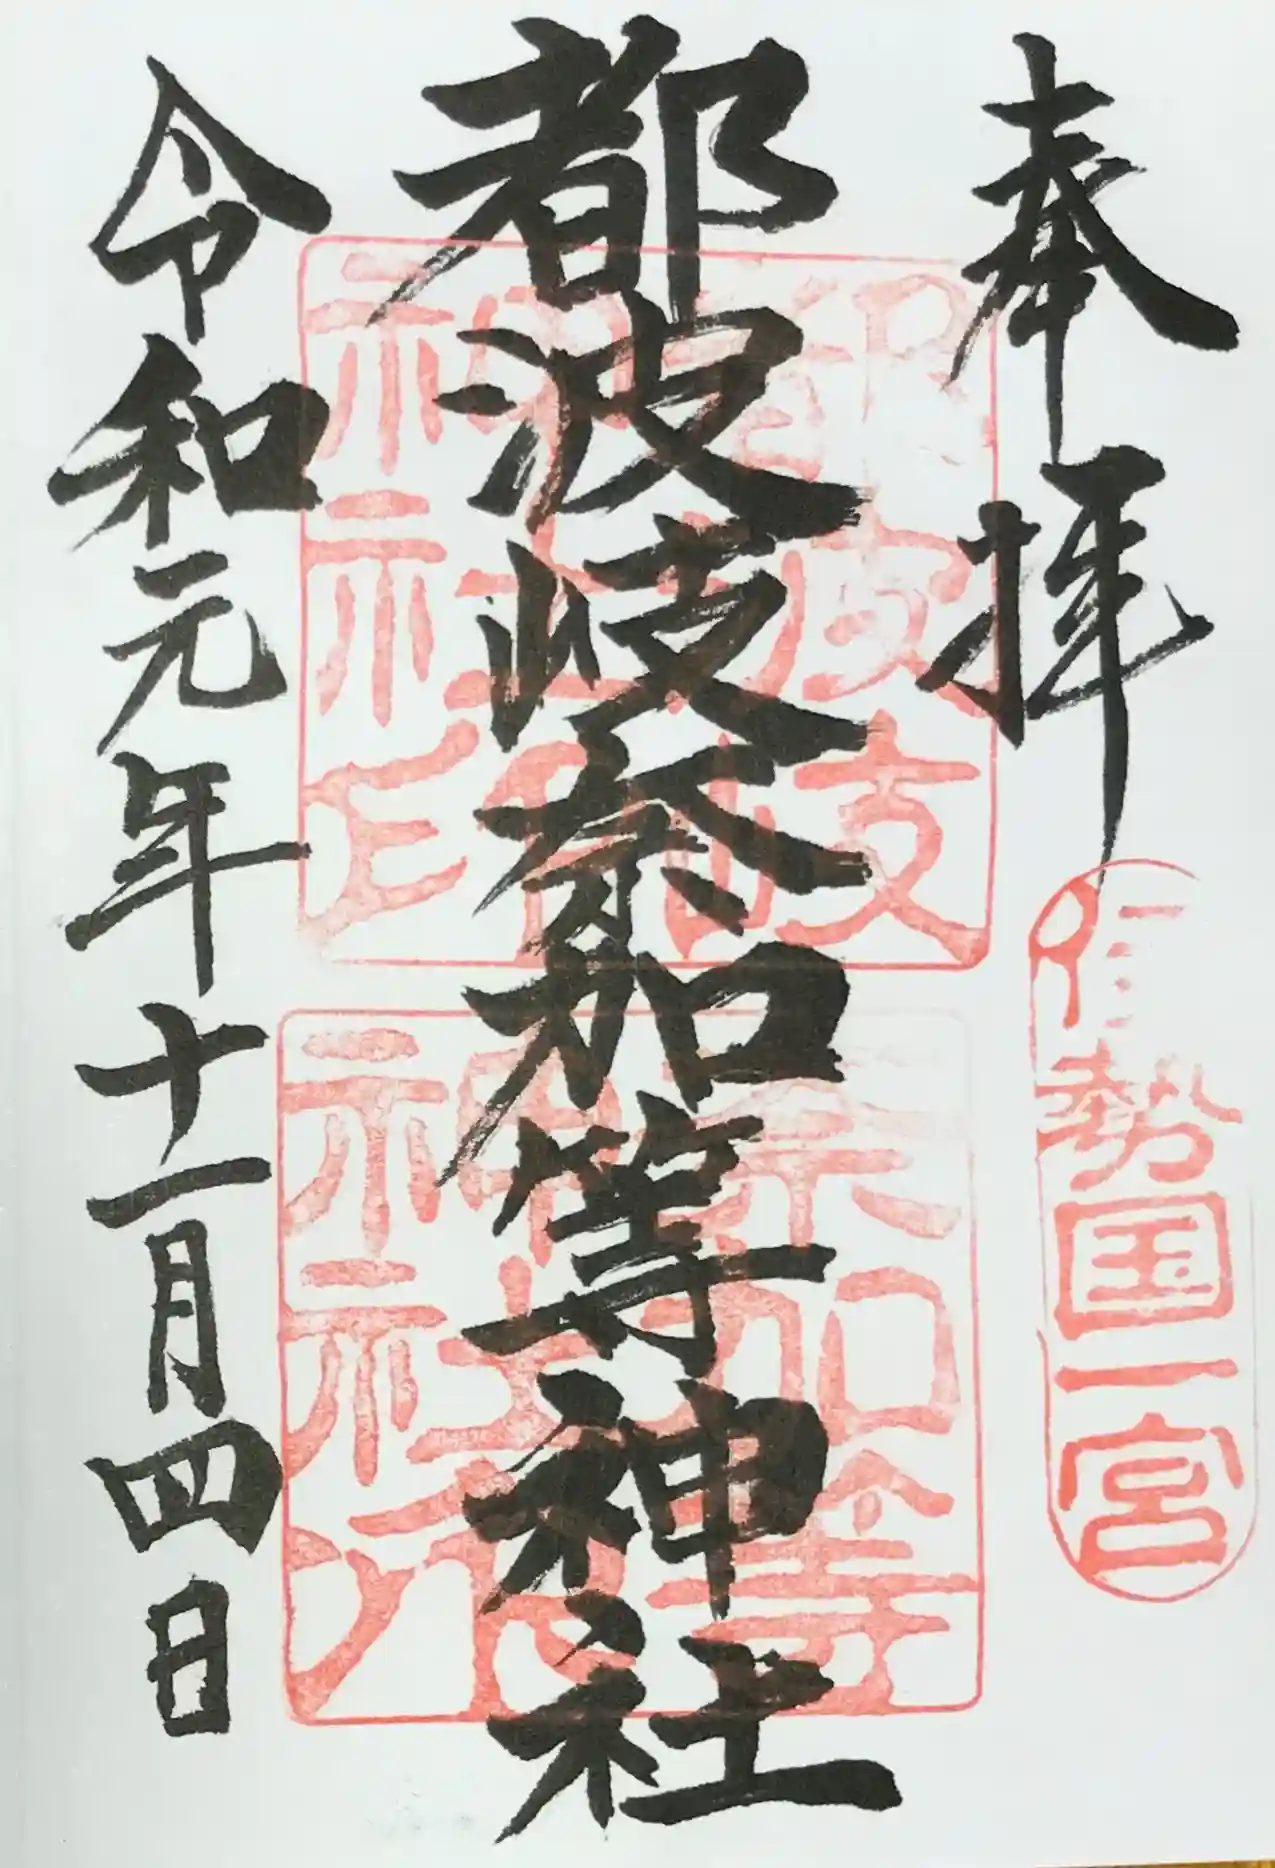 奉拝
伊勢国一宮
都波岐奈加等神社
都波岐
神社印
奈加等
神社印
令和元年十一月四日